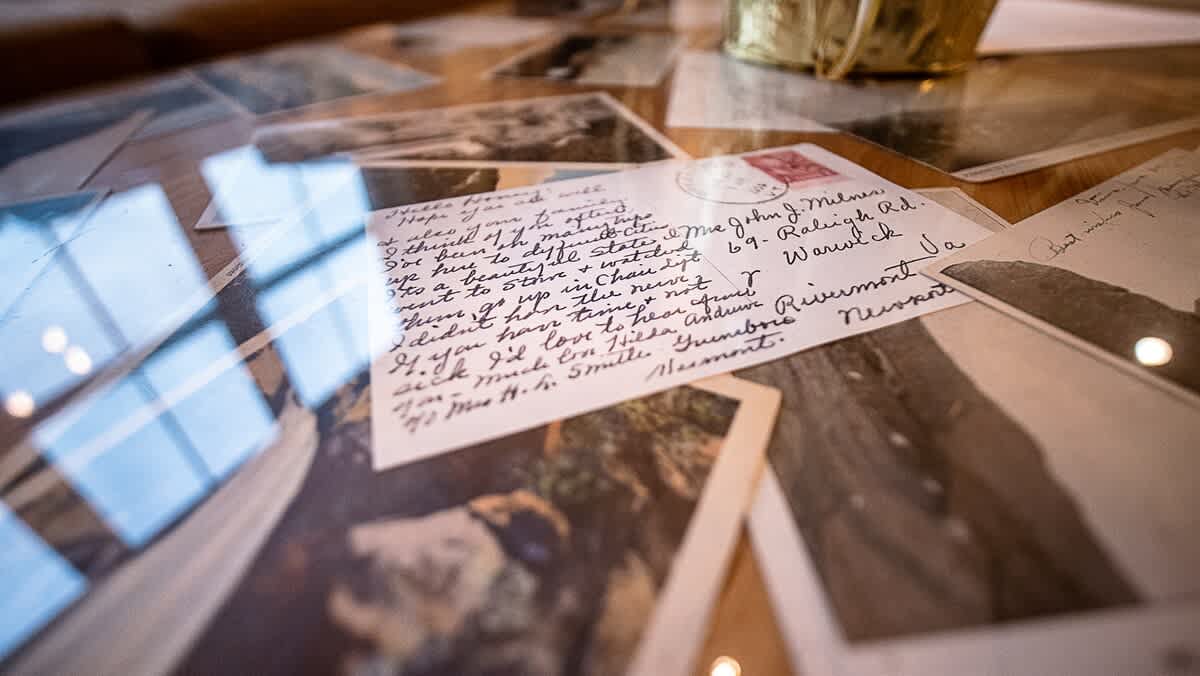 Hello Honey!
Hope you are well
& also your family.
I think of you often.
I've been on many trips
up here to different Cities
Its a beautiful State. I
went to Stowe & watched
them go up in Chair Lift
I didn't have the nerve
If you have time & not
sick I'd love to hear from
you - much love Hilda Andrews
c/o Mrs H. L. Smith Greensboro
Vermont.
Mrs John J. Milner
69 - Raleigh Rd.
Warwick
Va
Rivermont
Newport
Best wishes